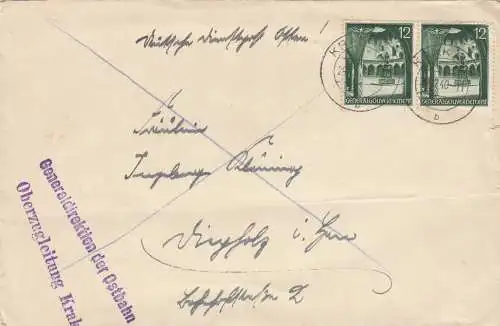 Deutsche Dienstpost Osten!
12 12
GENERALGOUVERNEMENT GENERALGOUVERNEMENT
KR
40
b b
Fräulein
Ingeborg
Diepholz i. Han
Bahnhofstraße 2
Generaldirektion der Ostbahn
Oberzugleitung Krak